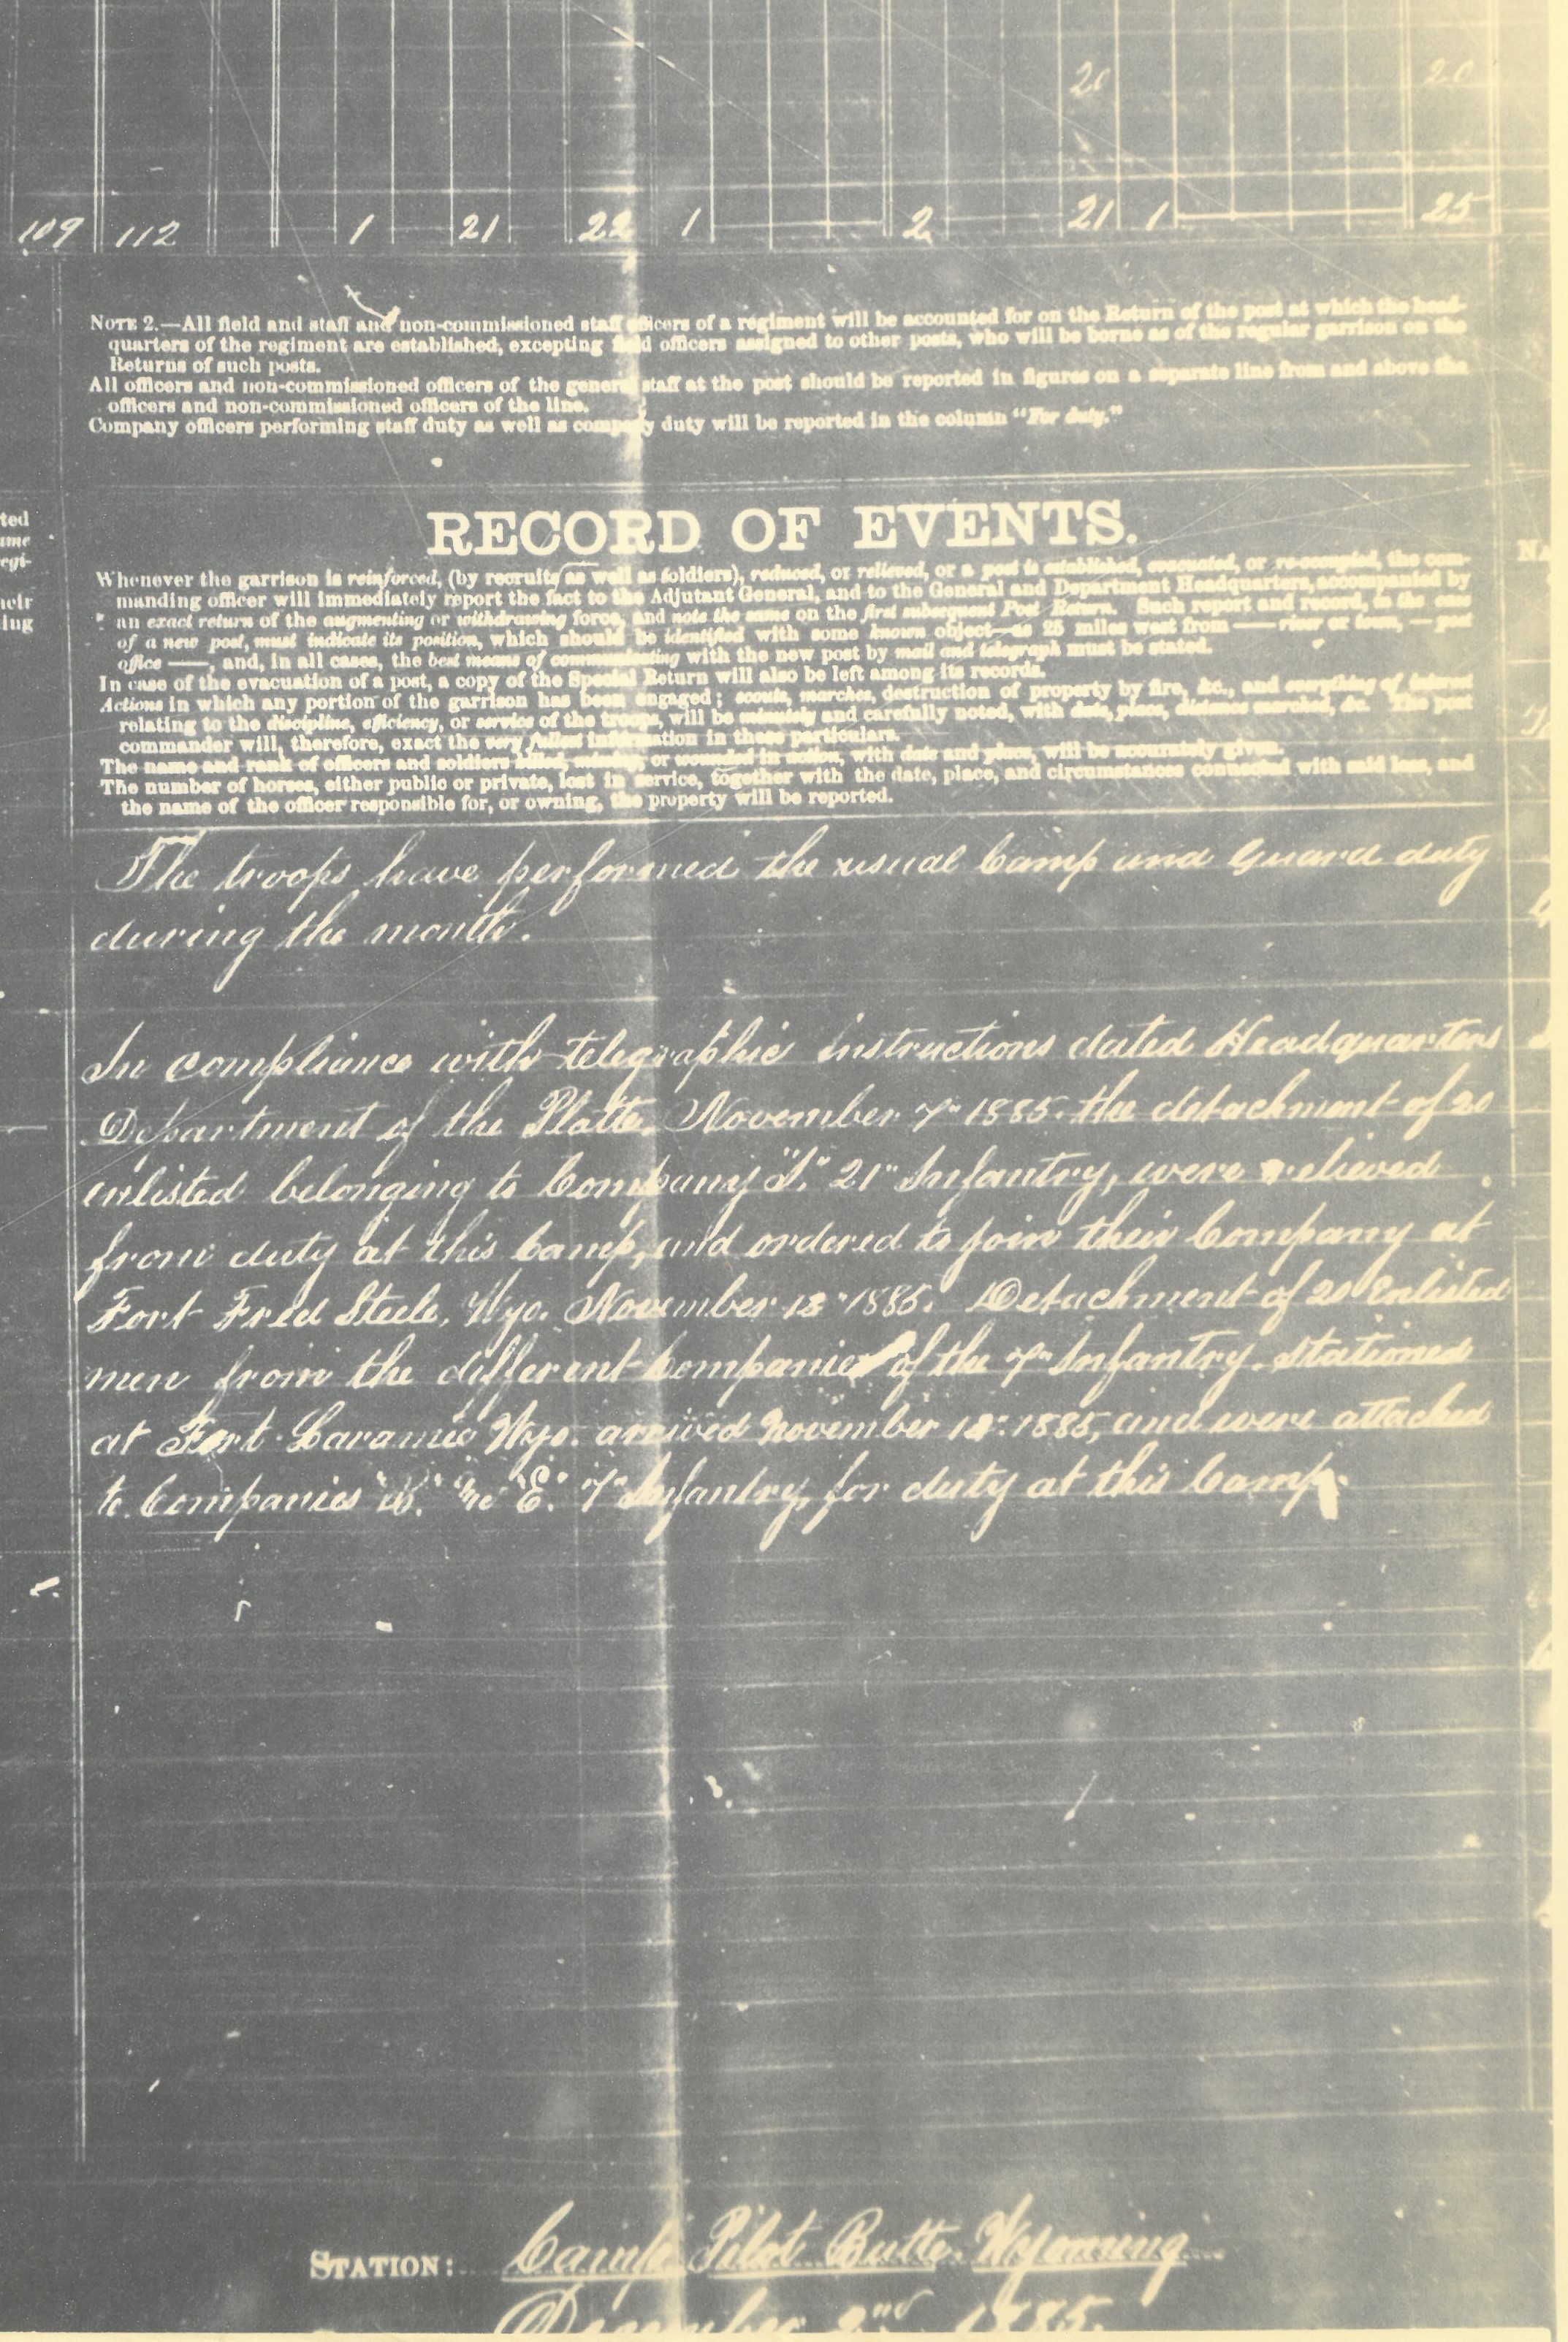 20 20
109 112 1 21 22 1 2 21 1 25
NOTE 2.—All field and staff and non-commissioned staff officers of a regiment will be accounted for on the Return of the post at which the head-
quarters of the regiment are established, excepting field officers assigned to other posts, who will be borne as of the regular garrison on the
Returns of such posts.
All officers and non-commissioned officers of the general staff at the post should be reported in figures on a separate line from and above the
officers and non-commissioned officers of the line.
Company officers performing staff duty as well as company duty will be reported in the column "For duty."
RECORD OF EVENTS.
Whenever the garrison is reinforced, (by recruits as well as soldiers), reduced, or relieved, or a post is established, evacuated, or re-occupied, the com-
manding officer will immediately report the fact to the Adjutant General, and to the General and Department Headquarters, accompanied by
an exact return of the augmenting or withdrawing force, and note the same on the first subsequent Post Return. Such report and record, in the case
of a new post, must indicate its position, which should be identified with some known object—as 25 miles west from —— river or town, — post
office ——, and, in all cases, the best means of communicating with the new post by mail and telegraph must be stated.
In case of the evacuation of a post, a copy of the Special Return will also be left among its records.
Actions in which any portion of the garrison has been engaged; scouts, marches, destruction of property by fire, &c., and everything of interest
relating to the discipline, efficiency, or service of the troops, will be minutely and carefully noted, with date, place, distance marched, &c. The post
commander will, therefore, exact the very fullest information in these particulars.
The name and rank of officers and soldiers killed, missing, or wounded in action, with date and place, will be accurately given.
The number of horses, either public or private, lost in service, together with the date, place, and circumstances connected with said loss, and
the name of the officer responsible for, or owning, the property will be reported.
The troops have performed the usual Camp and Guard duty
during the month.
In compliance with telegraphic instructions dated Headquarters
Department of the Platte, November 7" 1885. the detachment of 20
enlisted belonging to Company "I." 21" Infantry, were relieved
from duty at this Camp, and ordered to join their Company at
Fort Fred Steele, Wyo. November 12" 1885. Detachment of 20 Enlisted
men from the different Companies of the 7" Infantry. stationed
at Fort Laramie Wyo. arrived November 12". 1885, and were attached
to Companies "B." & "E." 7" Infantry, for duty at this Camp.
STATION: Camp Pilot Butte. Wyoming
December 2nd 1885.